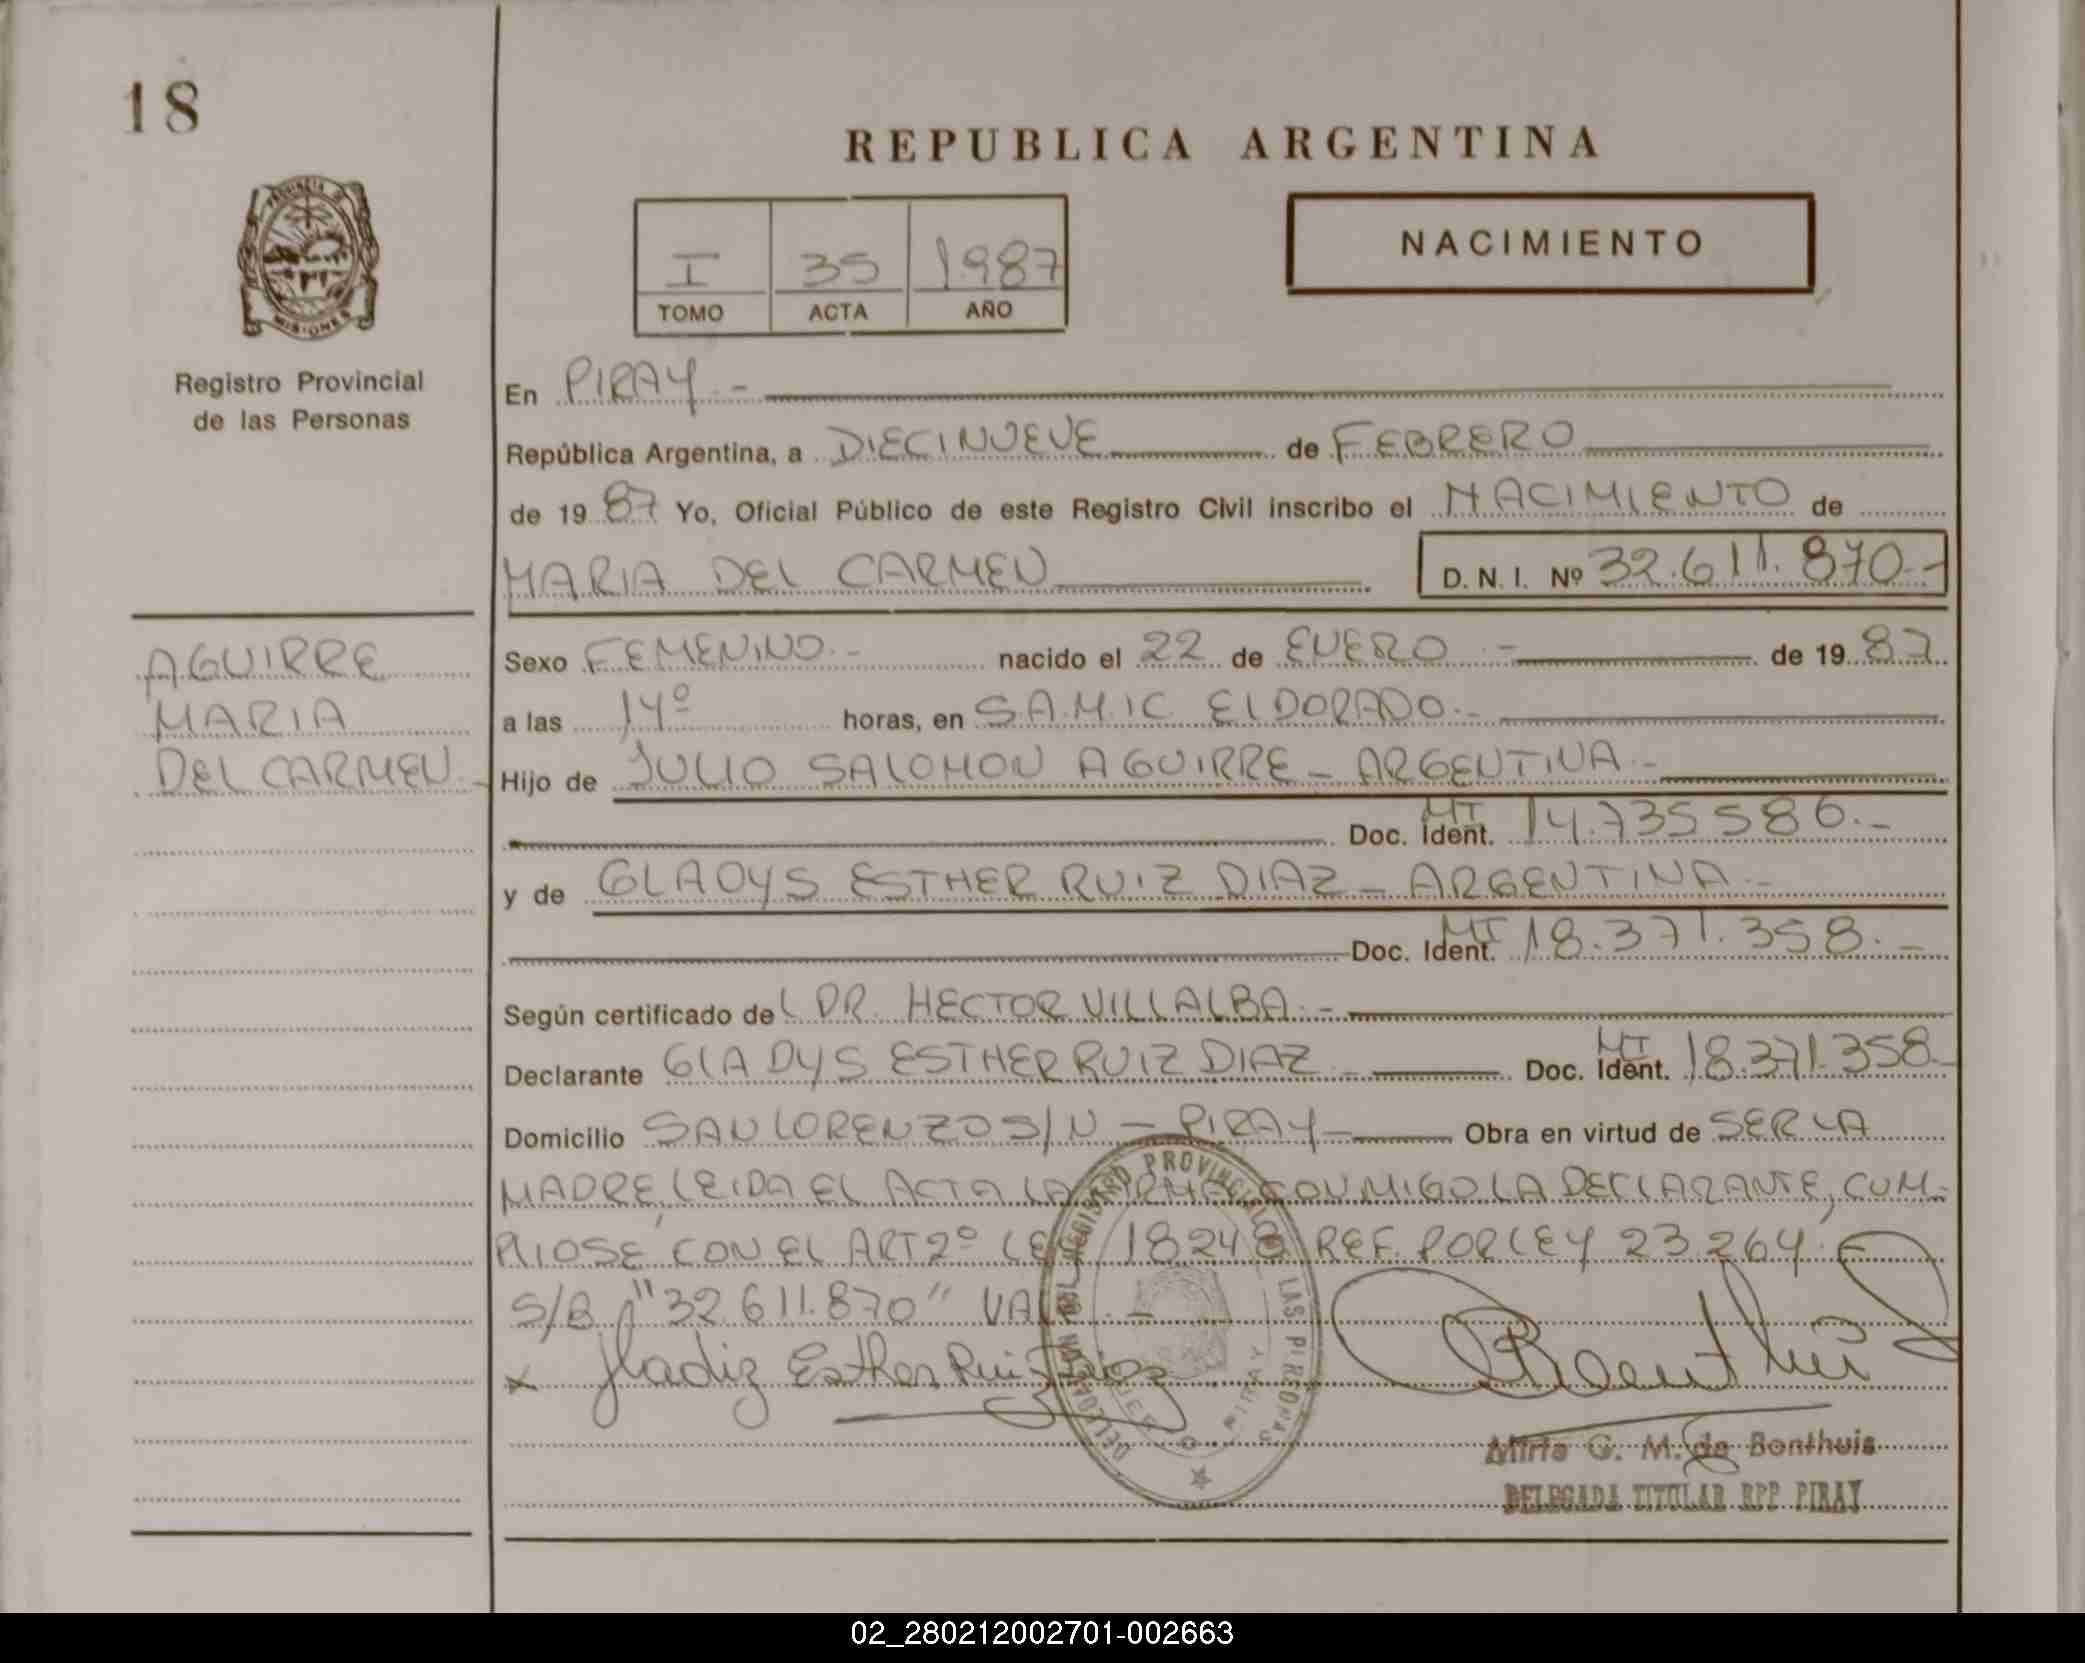 18
REPUBLICA ARGENTINA
PROVINCIA DE
MISIONES
Registro Provincial
de las Personas
I 35 1987
TOMO ACTA AÑO
NACIMIENTO
En PIRAY.-
República Argentina, a DIECINUEVE de FEBRERO
de 1987 Yo, Oficial Público de este Registro Civil inscribo el NACIMIENTO de
MARIA DEL CARMEN D. N. I. Nº 32.611.870.-
AGUIRRE
MARIA
DEL CARMEN.-
Sexo FEMENINO.- nacido el 22 de ENERO.- de 1987.
a las 14º horas, en S.A.M.I.C ELDORADO.-
Hijo de JULIO SALOMON AGUIRRE - ARGENTINA.-
Doc. Ident. MI 14.735586.-
y de GLADYS ESTHER RUIZ DIAZ - ARGENTINA.-
Doc. Ident. MI 18.371.358.-
Según certificado del DR. HECTOR VILLALBA.-
Declarante GLADYS ESTHER RUIZ DIAZ.- Doc. Ident. MI 18.371.358.-
Domicilio SAN LORENZO S/N - PIRAY- Obra en virtud de SER LA
MADRE, LEIDA EL ACTA LA FIRMA CONMIGO LA DECLARANTE, CUM-
PLIOSE CON EL ART 2º LEY 18248 REF. POR LEY 23.264.-
S/B "32.611.870" VALE.-
x Gladiz Esther Ruiz Diaz
Mirta G. M. de Bonthuis
DELEGADA TITULAR RPP PIRAY
02_280212002701-002663